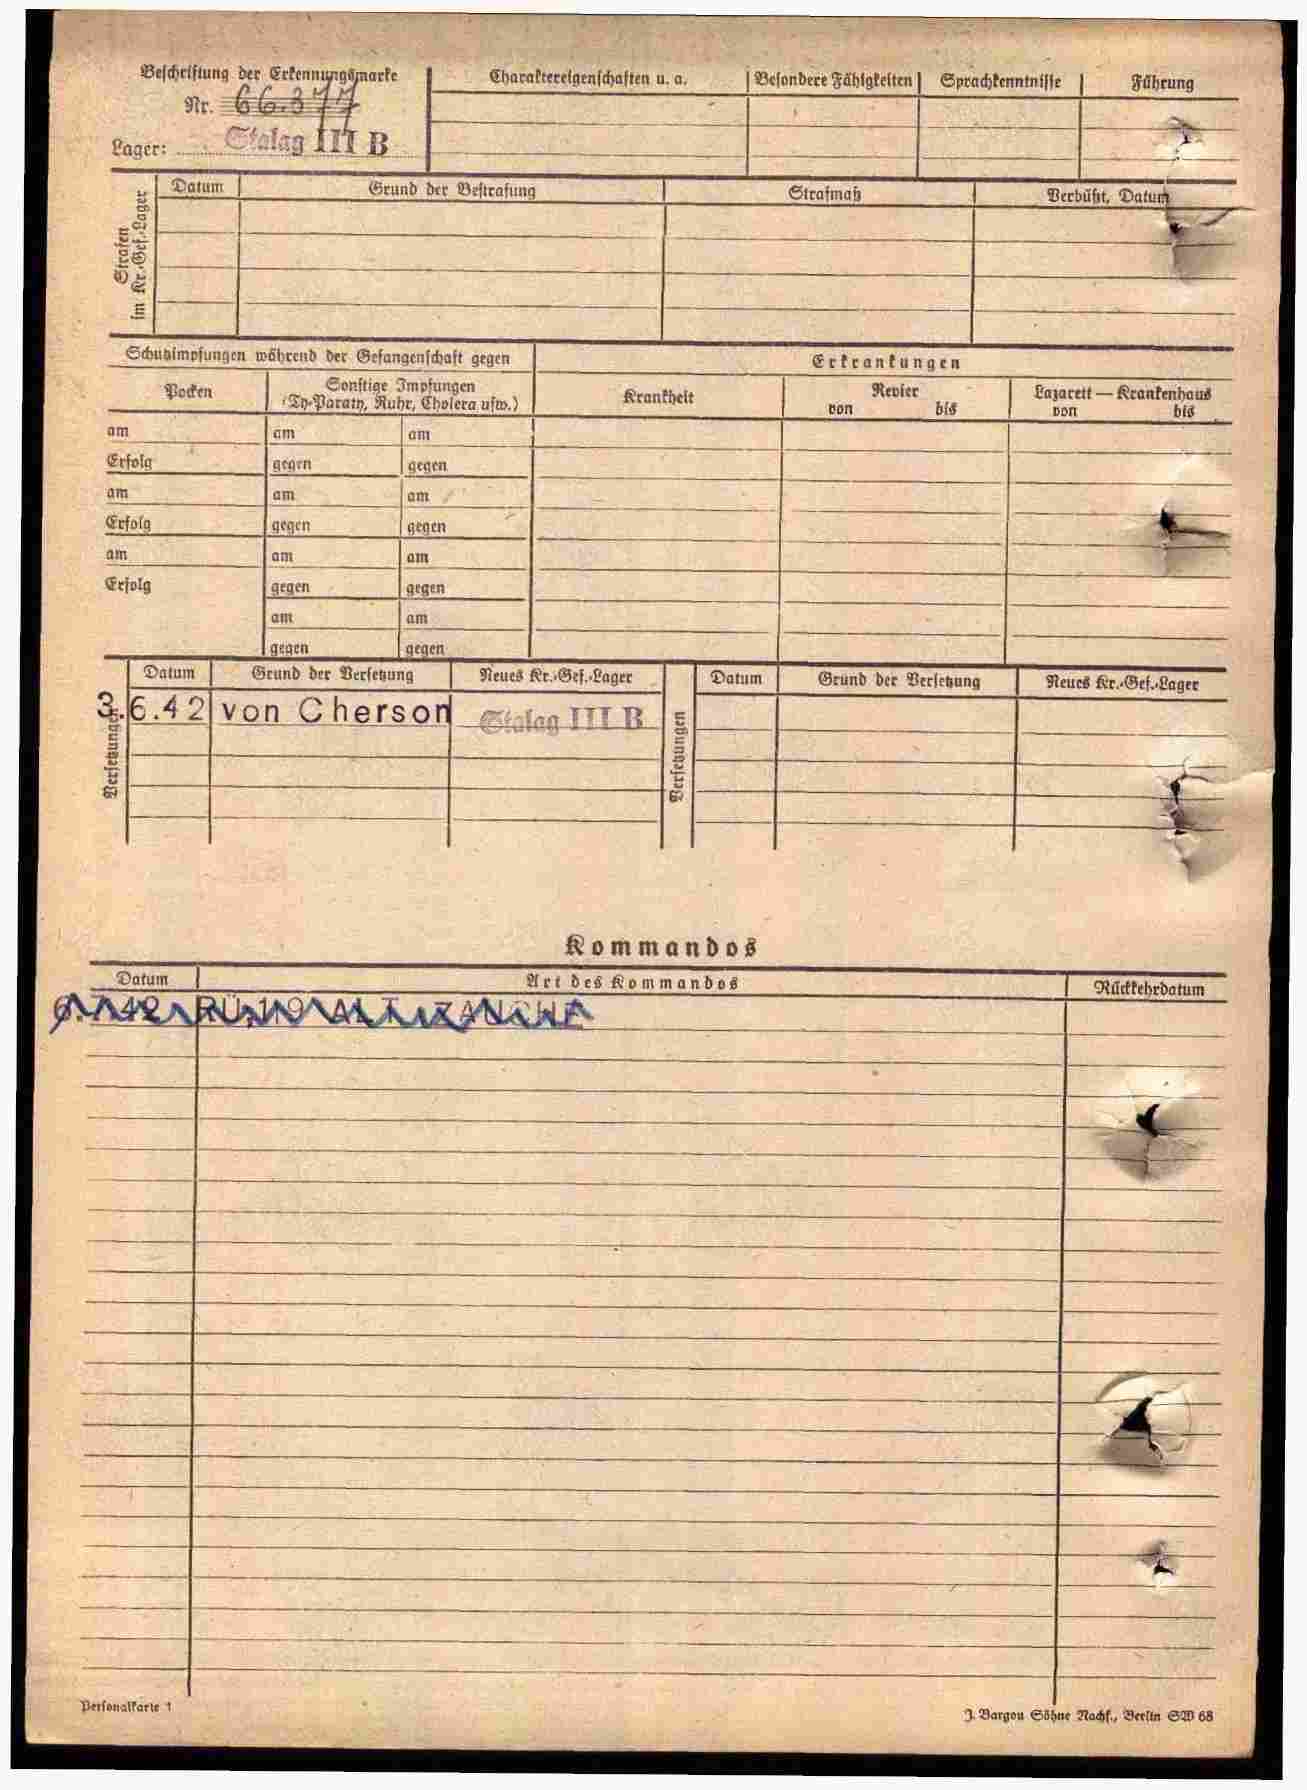 Beschriftung der Erkennungsmarke
Nr. 66.377
Lager: Stalag III B
Charaktereigenschaften u. a.
Besondere Fähigkeiten
Sprachkenntnisse
Führung
Strafen
im Kr.-Gef.-Lager
Datum
Grund der Bestrafung
Strafmaß
Verbüßt, Datum
Schutzimpfungen während der Gefangenschaft gegen
Erkrankungen
Pocken
Sonstige Impfungen
(Ty-Paraty, Ruhr, Cholera usw.)
Krankheit
Revier
von bis
Lazarett — Krankenhaus
von bis
am am am
Erfolg gegen gegen
am am am
Erfolg gegen gegen
am am am
Erfolg gegen gegen
am am
gegen gegen
Versetzungen
Datum Grund der Versetzung Neues Kr.-Gef.-Lager
3.6.42 von Cherson Stalag III B
Versetzungen
Datum Grund der Versetzung Neues Kr.-Gef.-Lager
Kommandos
Datum Art des Kommandos Rückkehrdatum
42 RÜ 19 ALT ZAUCHE
Personalkarte 1
J. Bargou Söhne Nachf., Berlin SW 68